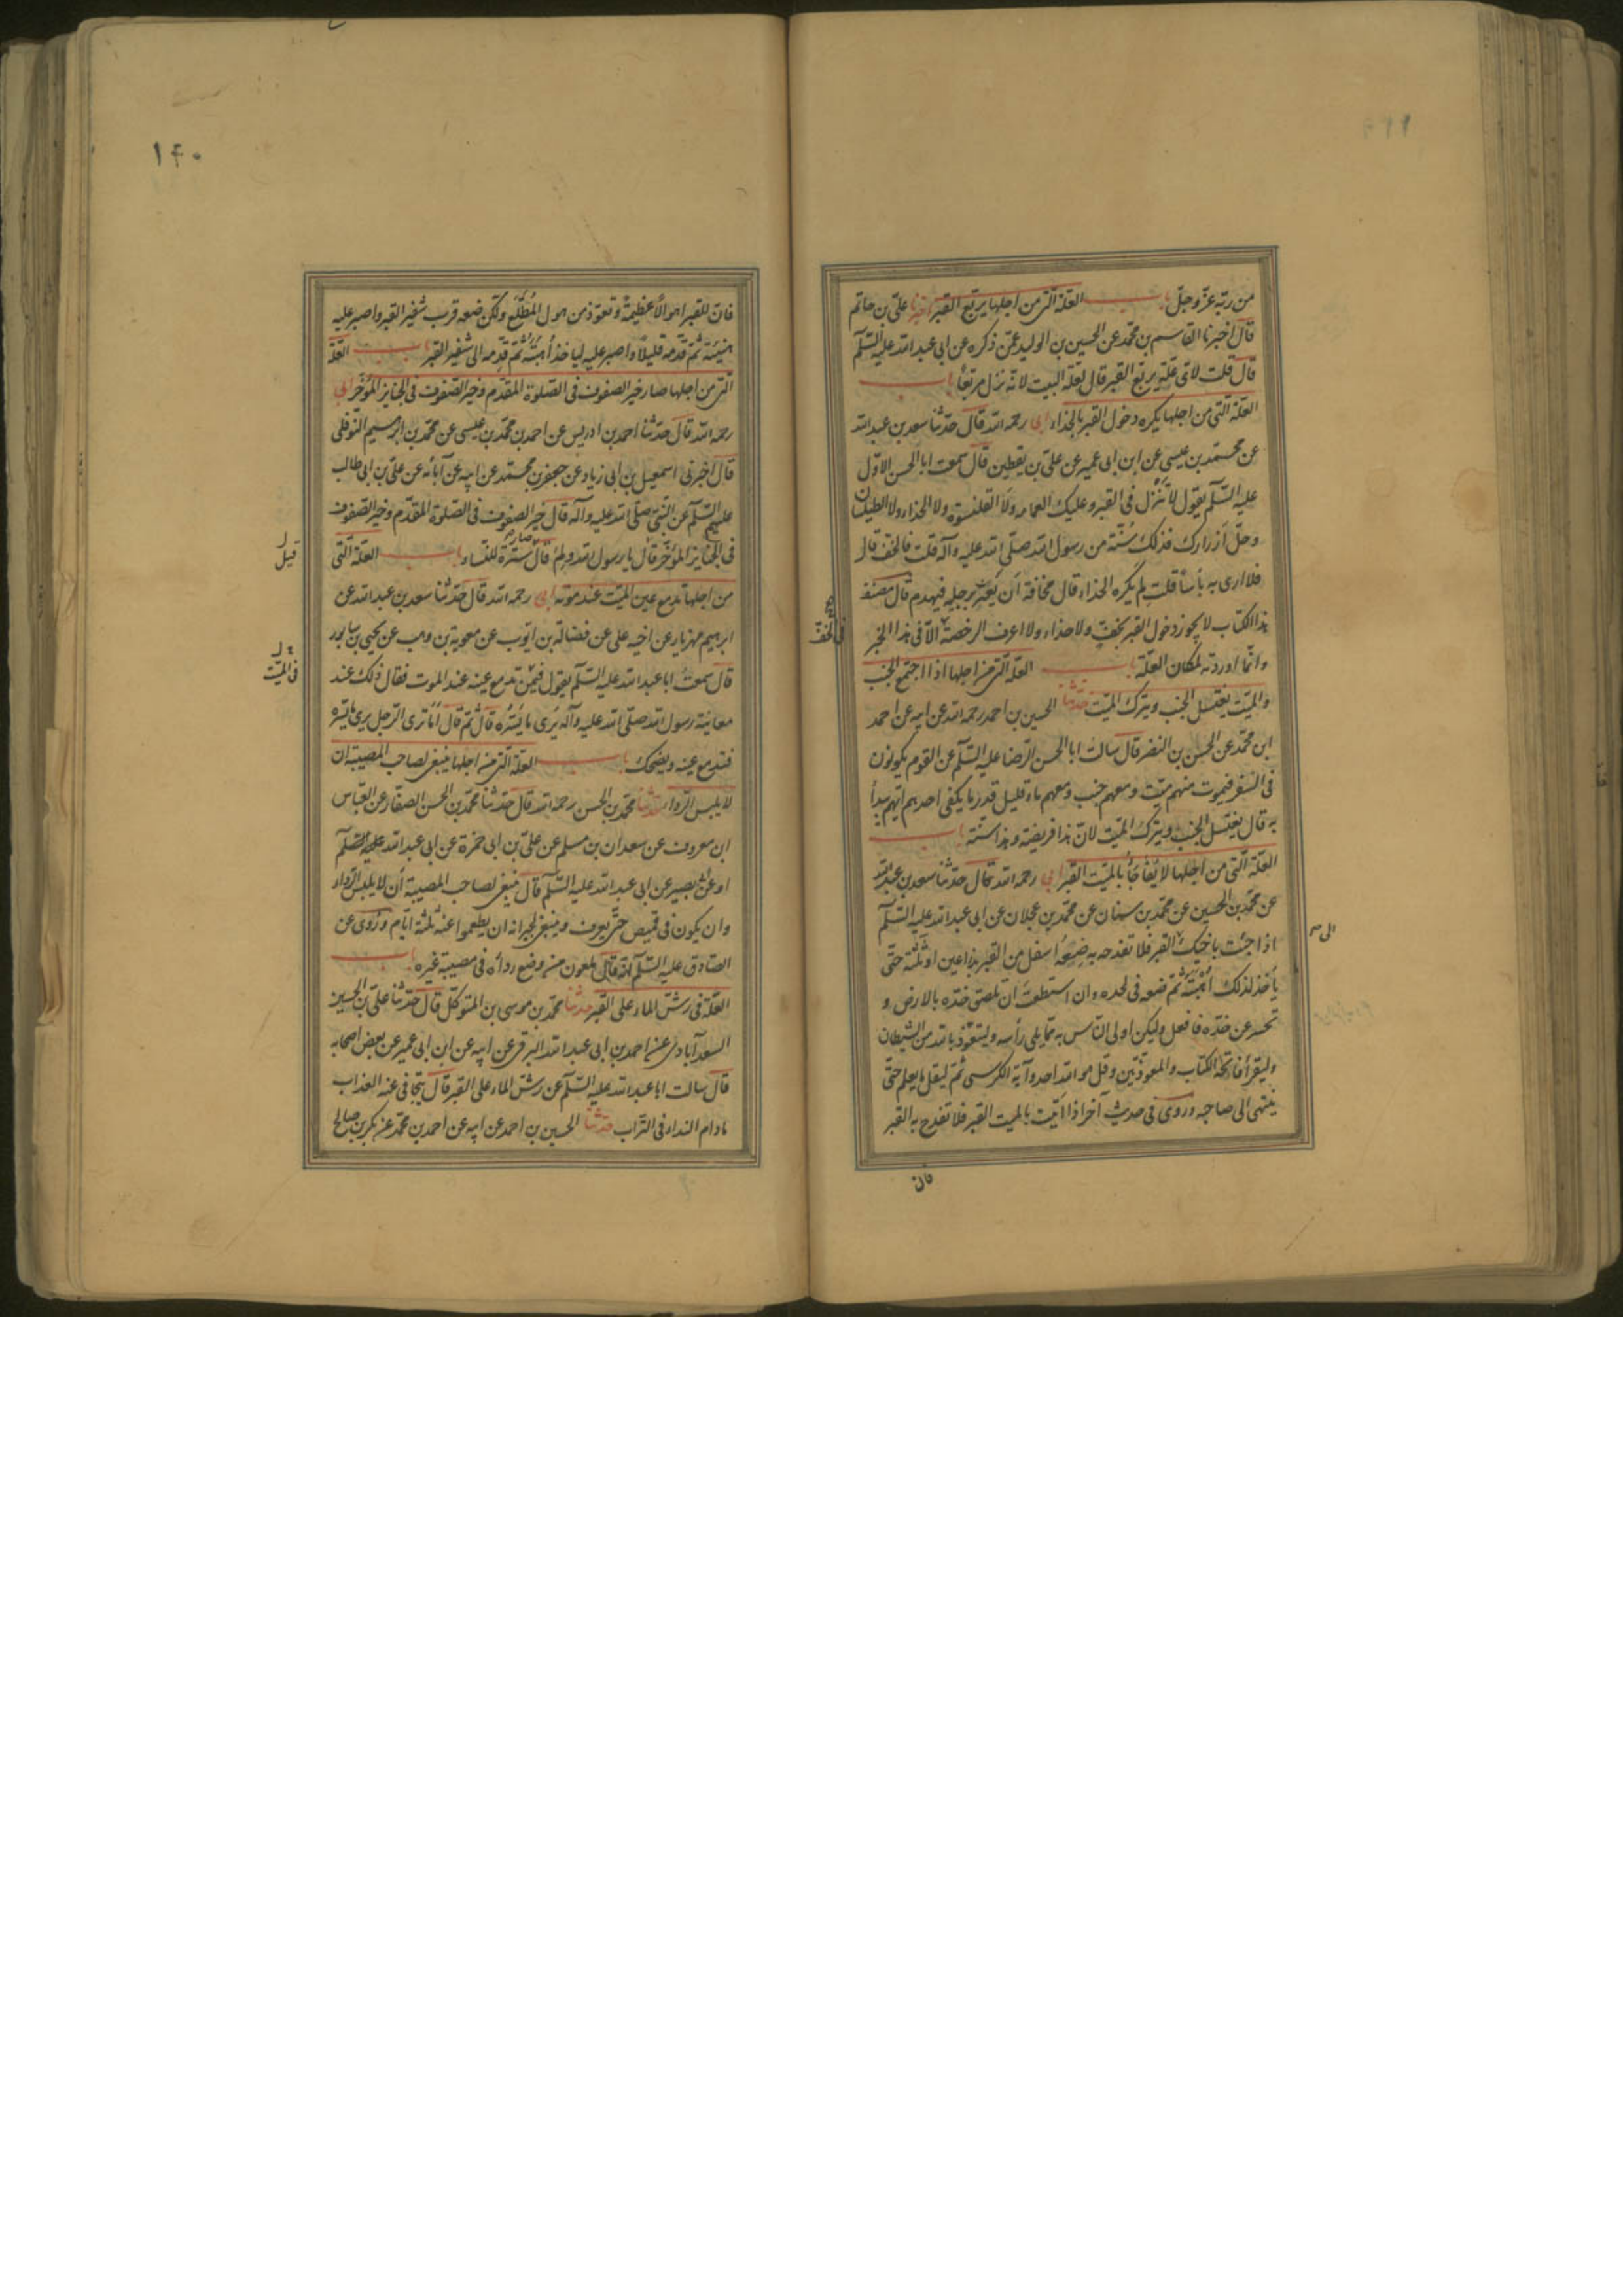 من ربه عزّ وجلّ باب العلّة التى من اجلها يربّع القبر اخبرنا علىّ بن حاتم
قال اخبرنا القاسم بن محمّد عن الحسين بن الوليد عمّن ذكره عن ابى عبد الله عليه السّلم
قال قلت لاىّ علّة يربّع القبر قال لعلّة البيت لانّه نزل مربّعاً باب
العلّة الّتى من اجلها يكره دخول القبر بالحذاء ابى رحمه الله قال حدّثنا سعد بن عبد الله
عن محمّد بن عيسى عن ابن ابى عمير عن علىّ بن يقطين قال سمعت ابا الحسن الاوّل
عليه السّلم يقول لا تنزل فى القبر وعليك العمامه ولا القلنسوة ولا الحذاء ولا الطيلسان
وحلّ ازرارك فذلك سُنّة من رسول الله صلّى الله عليه وآله قلت فالخف قال
فلا ارى به بأساً قلت لِمَ يكره الحذاء قال مخافة اَن يَعثر برجليه فيهدم قال مصنف
هذا الكتاب لا يجوز دخول القبر بخفّ ولا حذاء ولا اعرف الرخصة الّا فى هذا الخبر
فى الخفّ
وانّما اوردته لمكان العلّة باب العلّة التى من اجلها اذا اجتمع الجنب
والميّت يغتسل الجنب ويترك الميّت حدّثنا الحسين بن احمد رحمه الله عن ابيه عن احمد
ابن محمّد عن الحسن بن النضر قال سالت ابا الحسن الرّضا عليه السّلم عن القوم يكونون
فى السّفر فيموت منهم ميّت ومعهم جنب ومعهم ماء قليل قدر ما يكفى احدهم ايّهم يبدأ
به قال يغتسل الجنب ويترك الميّت لانّ هذا فريضة وهذا سنّة باب
العلّة الّتى من اجلها لا يُفاجأ بالميّت القبر ابى رحمه الله قال حدّثنا سعد بن عبد الله
عن محمّد بن الحسين عن محمّد بن سنان عن محمّد بن عجلان عن ابى عبد الله عليه السّلم
اذا جئت باخيك القبر فلا تفدحه به ضعه اسفل من القبر بذراعين او ثلثة حتّى
الى
يأخذ لذلك اُهبته ثمّ ضعه فى لحده وان استطعت ان تلصق خدّه بالارض و
تحسر عن خدّه فافعل وليكن اولى النّاس به ممّا يلى رأسه وليتعوّذ بالله من الشيطان
وليقرأ فاتحة الكتاب والمعوّذتين وقل هو الله احد وآية الكرسى ثمّ ليقل ما يعلم حتّى
ينتهى الى صاحبه وروى فى حديث آخر اذا اتيت بالميت القبر فلا تفدح به القبر
فان
۱۴۰
فانّ للقبر اهوالاً عظيمةً وتعوّذ من هول المُطّلع ولكن ضعه قرب شفير القبر واصبر عليه
هنيئة ثمّ قدّمه قليلاً واصبر عليه لياخذ اُهبته ثمّ قدّمه الى شفير القبر باب العلّة
التى من اجلها صار خير الصفوف فى الصّلوة المقدّم وخير الصّفوف فى الجنايز المُؤخّر ابى
رحمه الله قال حدّثنا احمد بن ادريس عن احمد بن محمّد بن عيسى عن محمّد بن ابرهيم النّوفلى
قال اخبرنى اسمعيل بن ابى زياد عن جعفر بن محمّد عن ابيه عن آبائه عن علىّ بن ابى طالب
عليهم السّلم عن النّبى صلّى الله عليه وآله قال خير الصفوف فى الصّلوة المقدّم وخير الصّفوف
فى الجنايز المؤخّر قال يا رسول الله ولِمَ قال صار سترة للنّساء باب العلّة الّتى
قيل
من اجلها تدمع عين الميّت عند موته ابى رحمه الله قال حدّثنا سعد بن عبد الله عن
ابرهيم مهزيار عن اخيه على عن فضالة بن ايّوب عن معوية بن وهب عن يحيى بن سابور
قال سمعت ابا عبد الله عليه السّلم يقول فيمن تدمع عينه عند الموت فقال ذلك عند
فى الميّت
معاينة رسول الله صلّى الله عليه وآله يَرى ما يَسُرّه قال ثمّ قال اَما ترى الرّجل يرى ما يسرّه
فتدمع عينه ويضحك باب العلّة التى من اجلها ينبغى لصاحب المصيبة ان
لا يلبس الرّداء حدّثنا محمّد بن الحسن رحمه الله قال حدّثنا محمّد بن الحسن الصفّار عن العبّاس
ابن معروف عن سعدان بن مسلم عن علىّ بن ابى حمزة عن ابى عبد الله عليه السّلم
او عن ابى بصير عن ابى عبد الله عليه السّلم قال ينبغى لصاحب المصيبة اَن لا يلبس الرّداء
وان يكون فى قميص حتّى يعرف وينبغى لجيرانه ان يطعموا عنه ثلثة ايّام ورُوى عن
الصّادق عليه السّلم انّه قال ملعون من وضع ردآءه فى مصيبة غيره باب
العلّة فى رشّ الماء على القبر حدّثنا محمّد بن موسى بن المتوكّل قال حدّثنا علىّ بن الحسين
السعدآبادى عن احمد بن ابى عبد الله البرقى عن ابيه عن ابن ابى عمير عن بعض اصحابه
قال سالت ابا عبد الله عليه السّلم عن رشّ الماء على القبر قال يتجافى عنه العذاب
مادام النداء فى التّراب حدّثنا الحسين بن احمد عن ابيه عن احمد بن محمّد عن بكر بن صالح